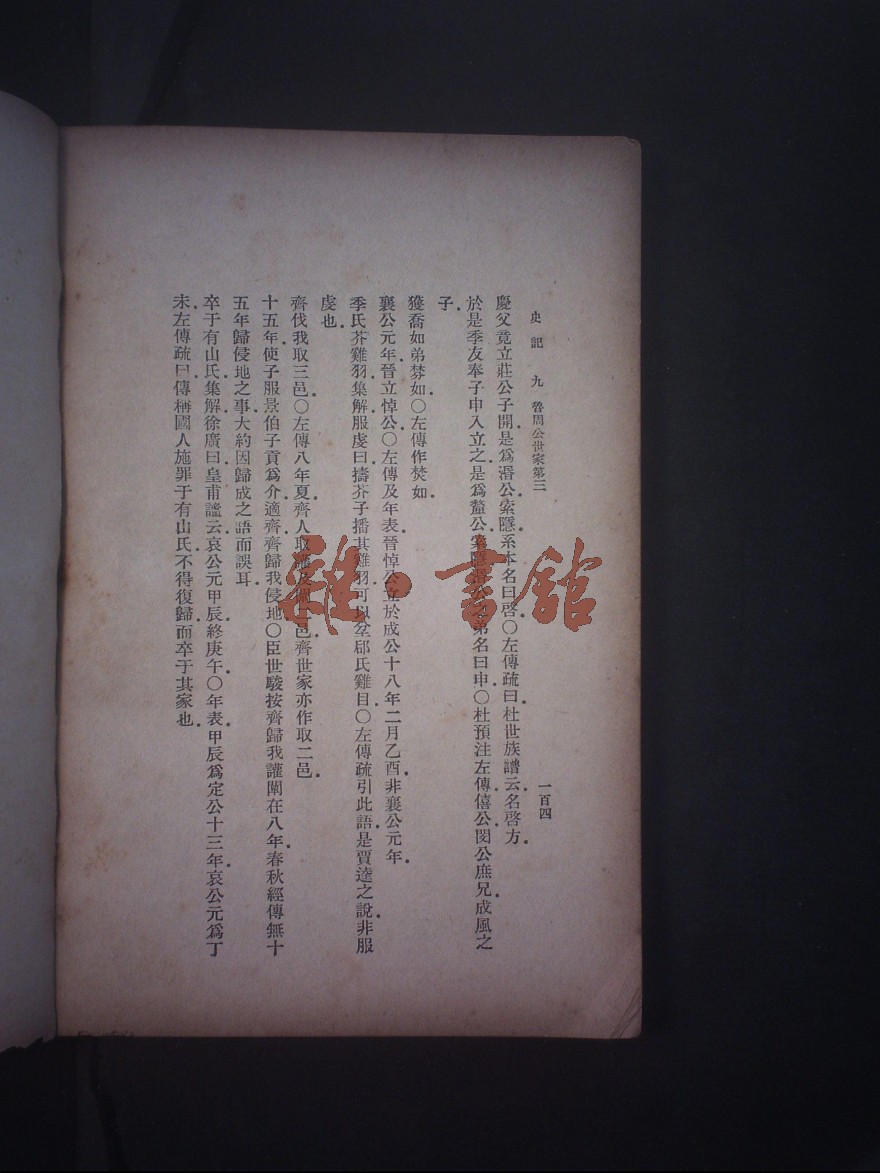 史記 九 魯周公世家第三 一百四
慶父竟立莊公子開是爲湣公索隱系本名曰啓○左傳疏曰杜世族譜云名啓方.
於是季友奉子申入立之是爲釐公索隱湣公之弟名曰申○杜預注左傳僖公閔公庶兄成風之
子.
獲喬如弟棼如○左傳作焚如.
襄公元年晉立悼公○左傳及年表晉悼公立於成公十八年二月乙酉非襄公元年.
季氏芥雞羽集解服虔曰擣芥子播其雞羽可以坌郈氏雞目○左傳疏引此語是賈逵之說非服
虔也.
齊伐我取三邑○左傳八年夏齊人取讙及闡二邑齊世家亦作取二邑.
十五年使子服景伯子貢爲介適齊齊歸我侵地○臣世駿按齊歸我讙闡在八年春秋經傳無十
五年歸侵地之事大約因歸成之語而誤耳.
卒于有山氏集解徐廣曰皇甫謐云哀公元甲辰終庚午○年表甲辰爲定公十三年哀公元爲丁
未左傳疏曰傳稱國人施罪于有山氏不得復歸而卒于其家也.
雜·書館